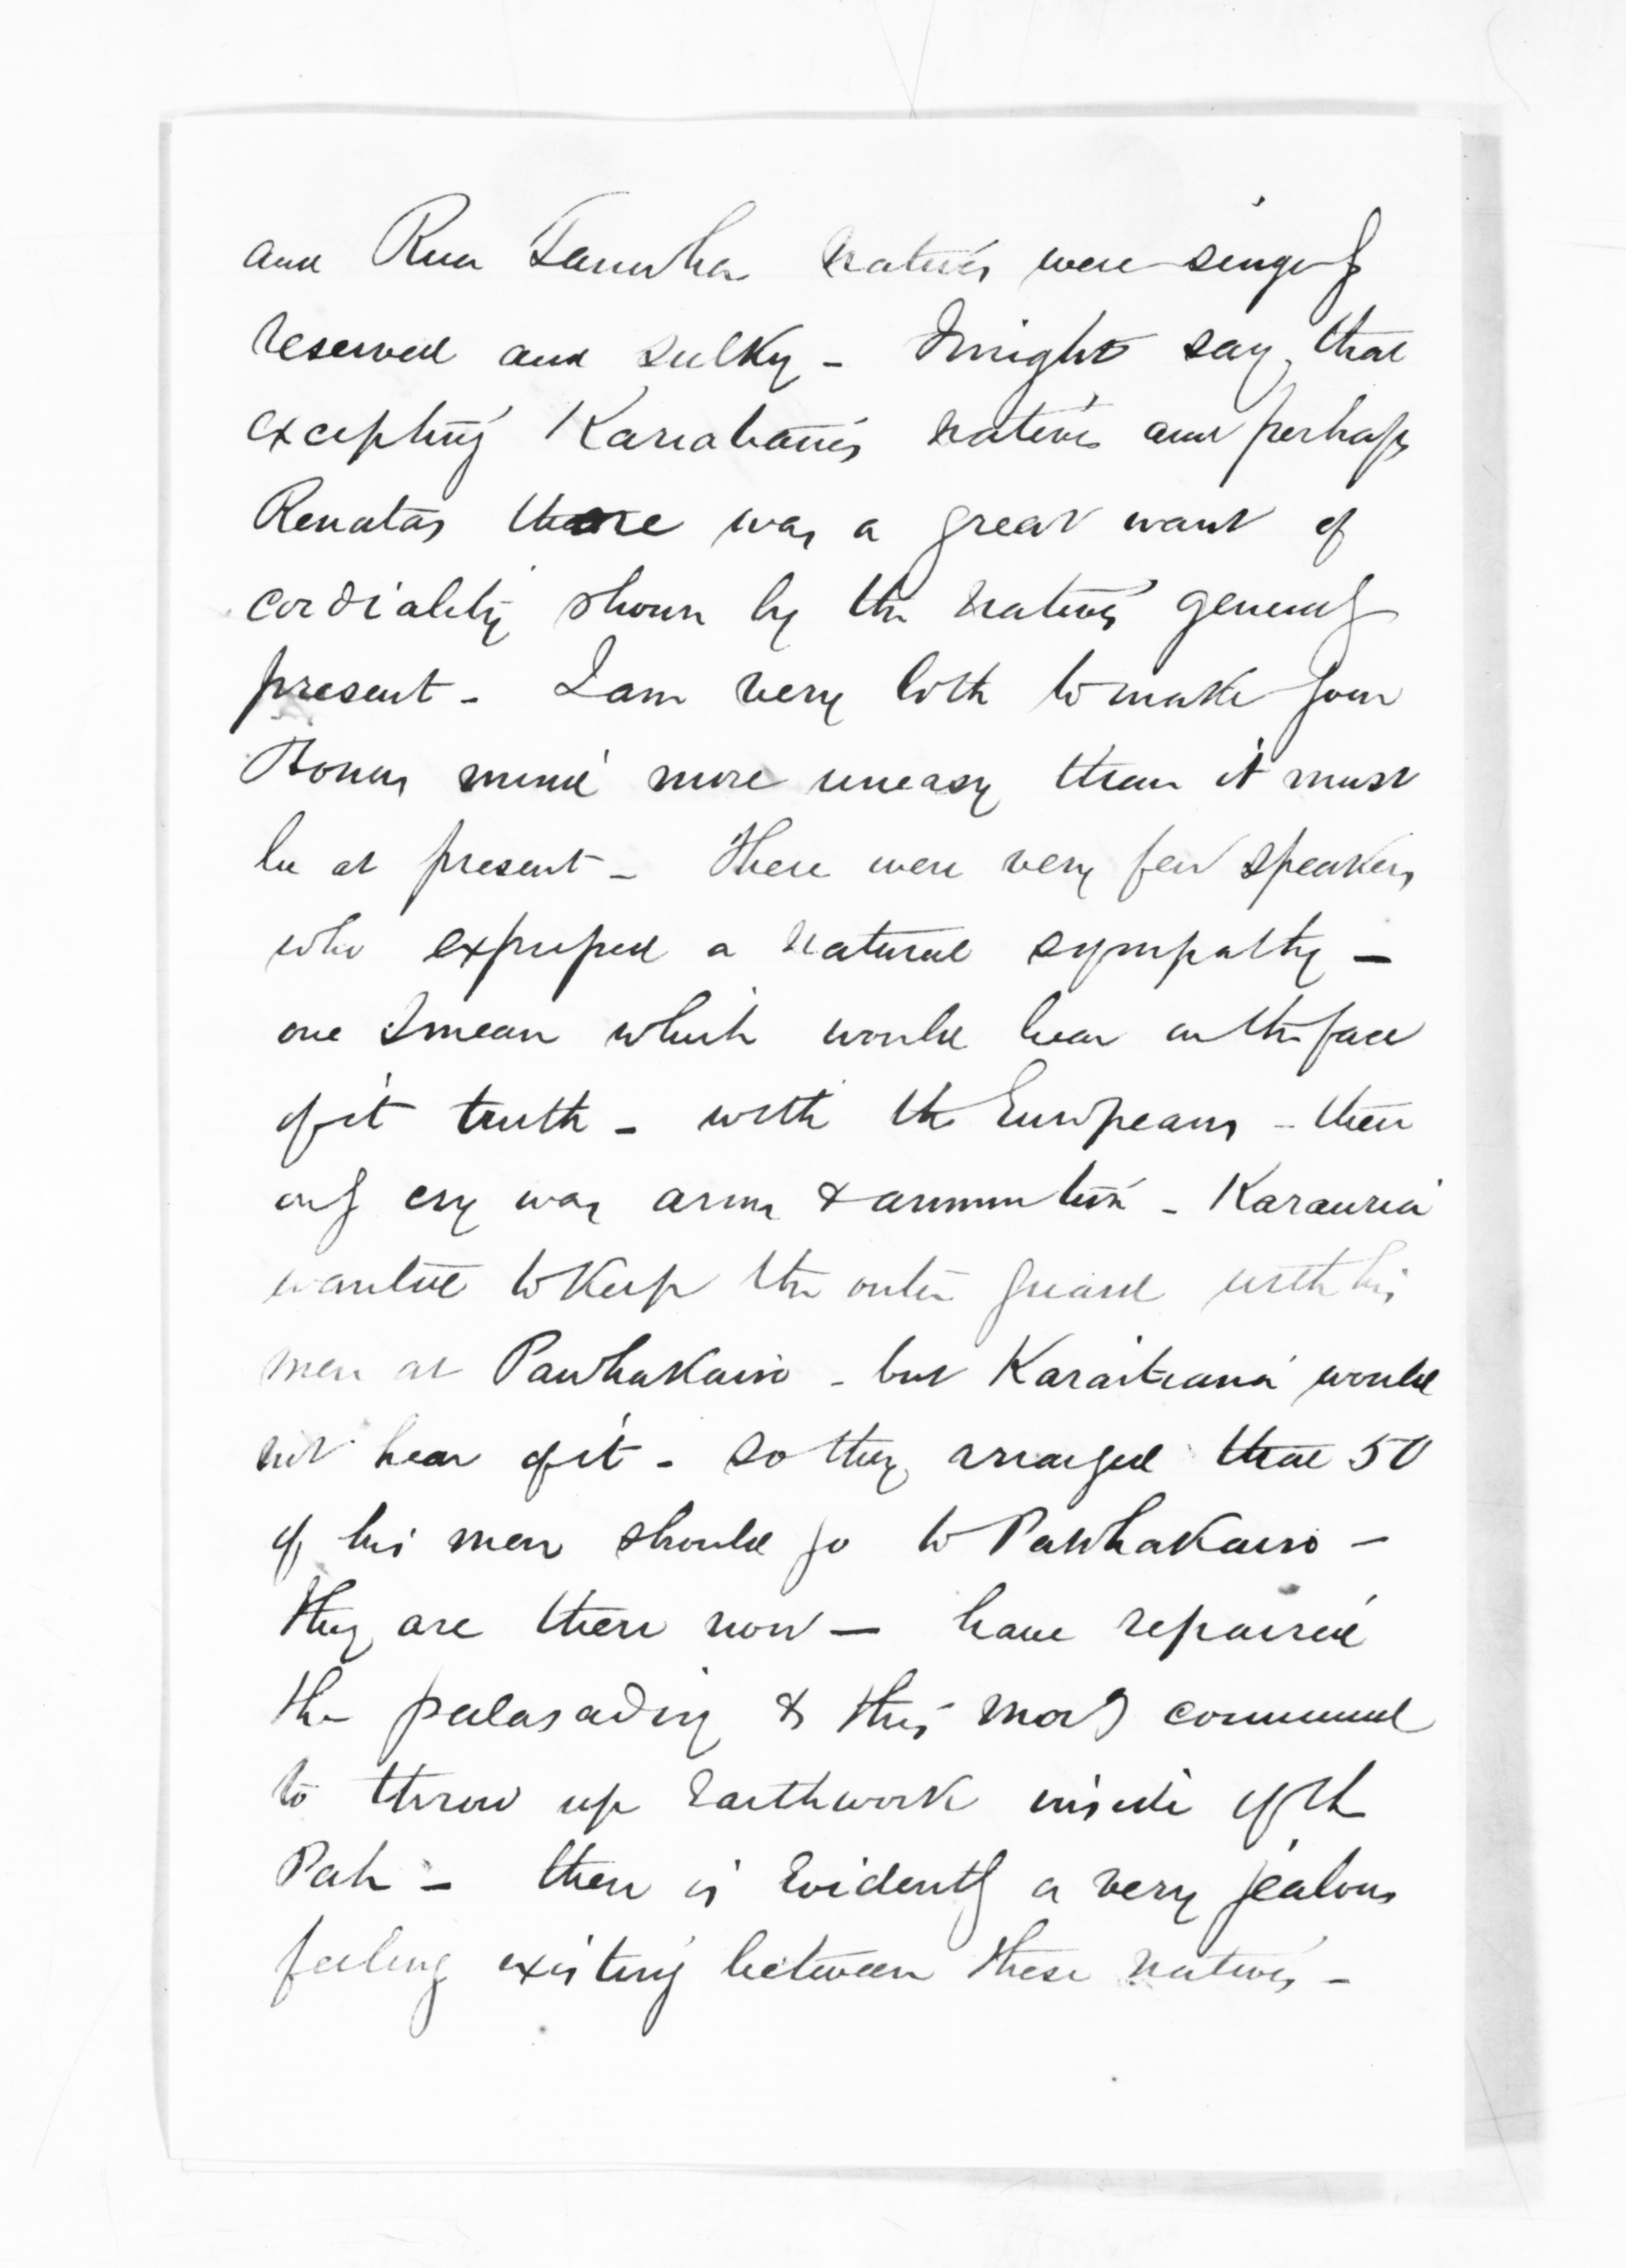 and Rua Tauwha natives were singerly
reserved and sulky - I might say, that
excepting Karaitiana's natives and perhaps
Renatas there was a great want of
cordiality shown by the natives generally
present - I am very loth to make your
Honors mind more uneasy than it must
be at present - There were very few speakers
who expressed a natural sympathy -
one I mean which would bear on the face
of it truth - with the Europeans - their
only cry was arms & ammunition - Karauria
wanted to keep the outer guard with his
men at Pawhakairo - but Karaitiana would
not hear of it - so they arranged that 50
of his men should go to Pawhakairo -
They are there now - have repaired
the palasading & this mor[nin]g commenced
to throw up Earthwork inside of the
Pah - there is Evidently a very jealous
feeling existing between these natives -